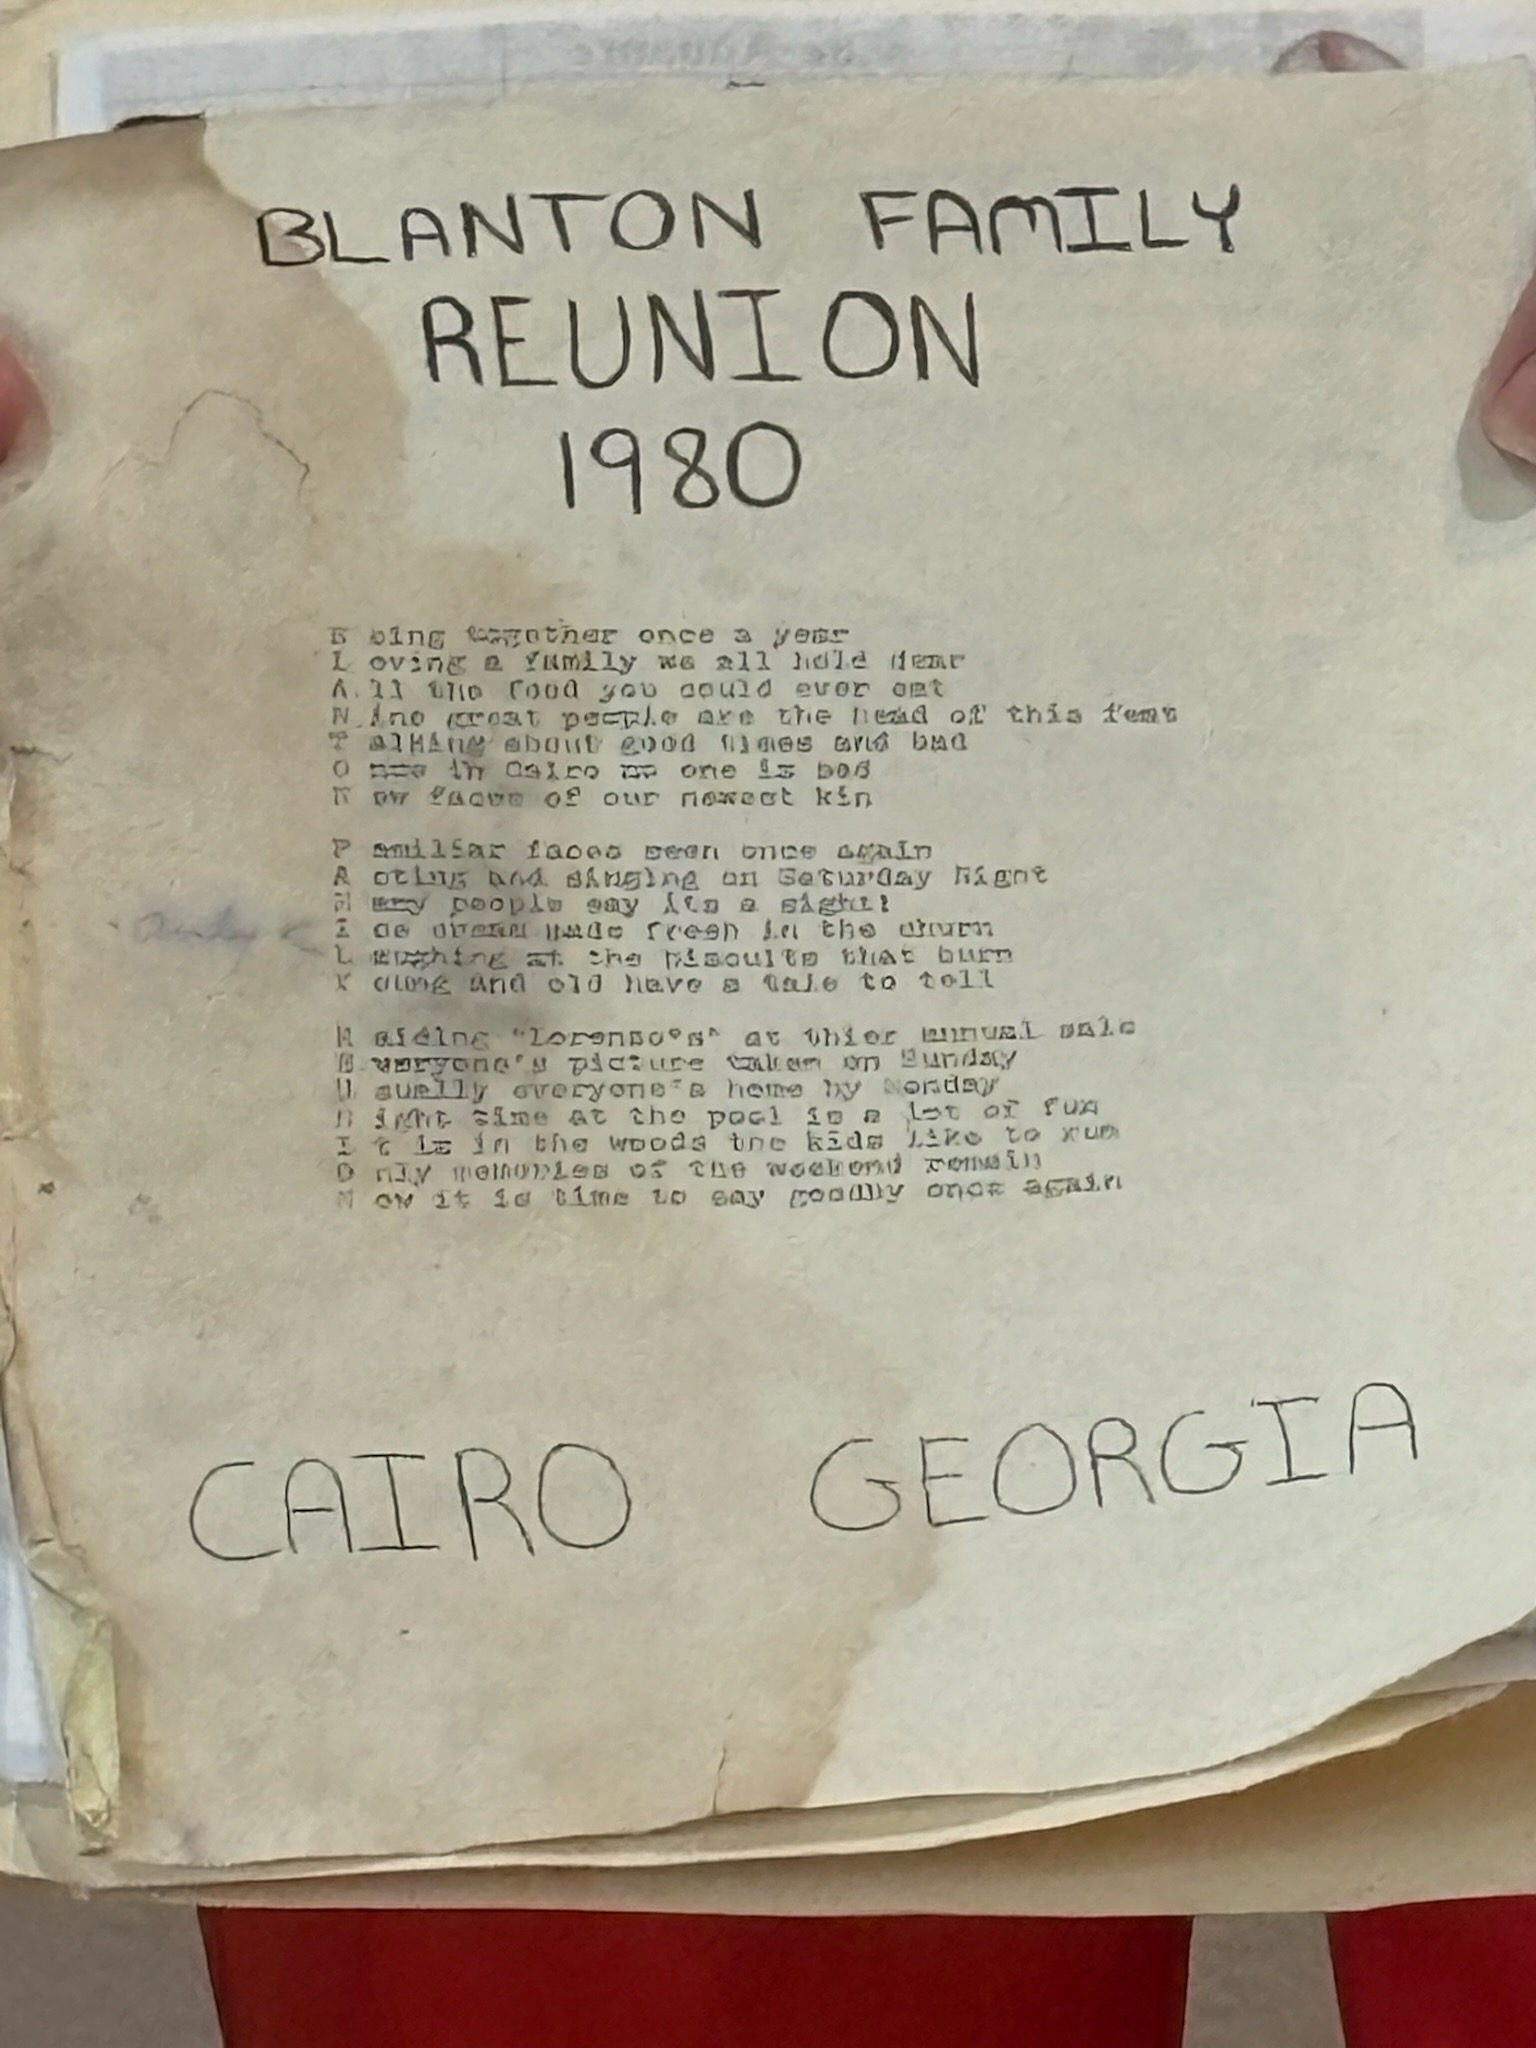 BLANTON FAMILY
REUNION
1980
B eing together once a year
L oving a family we all hold dear
A ll the food you could ever eat
N ine great people are the head of this feat
T alking about good times and bad
O nce in Cairo no one is
N ew faces of our newest kin
F amiliar faces seen once again
A cting and singing on Saturday Night
M any people say its a sight!
I ce cream made fresh in the churn
L aughing at the biscuits that burn
Y oung and old have a tale to tell
R aiding "Lorenzo's" at thier annual sale
E veryone's picture taken on Sunday
U sually everyone's home by Monday
N ight time at the pool is a lot of fun
I t is in the woods the kids like to run
O nly memories of the weekend remain
N ow it is time to say goodby once again
CAIRO GEORGIA